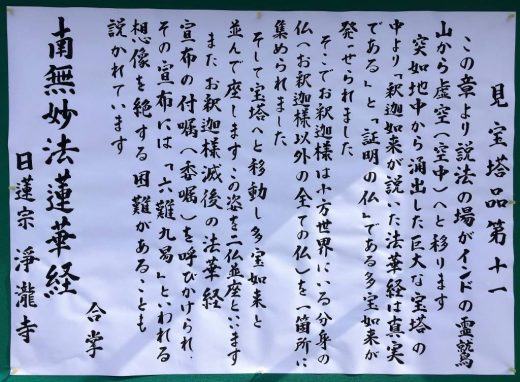 見宝塔品第十一
この章より説法の場がインドの霊鷲
山から虚空(空中)へと移ります
突如地中から涌出した巨大な宝塔の
中より「釈迦如来が説いた法華経は真実
である」と「証明の仏」である多宝如来が
発せられました
そこでお釈迦様は十方世界にいる分身の
仏(お釈迦様以外の全ての仏)を一箇所に
集められました
そして宝塔へと移動し多宝如来と
並んで座しますこの姿を二仏並座といいます
またお釈迦様滅後の法華経
宣布の付嘱(委嘱)を呼びかけられ、
その宣布には「六難九易」といわれる
想像を絶する困難があることも
説かれています
合掌
南無妙法蓮華経
日蓮宗 淨瀧寺